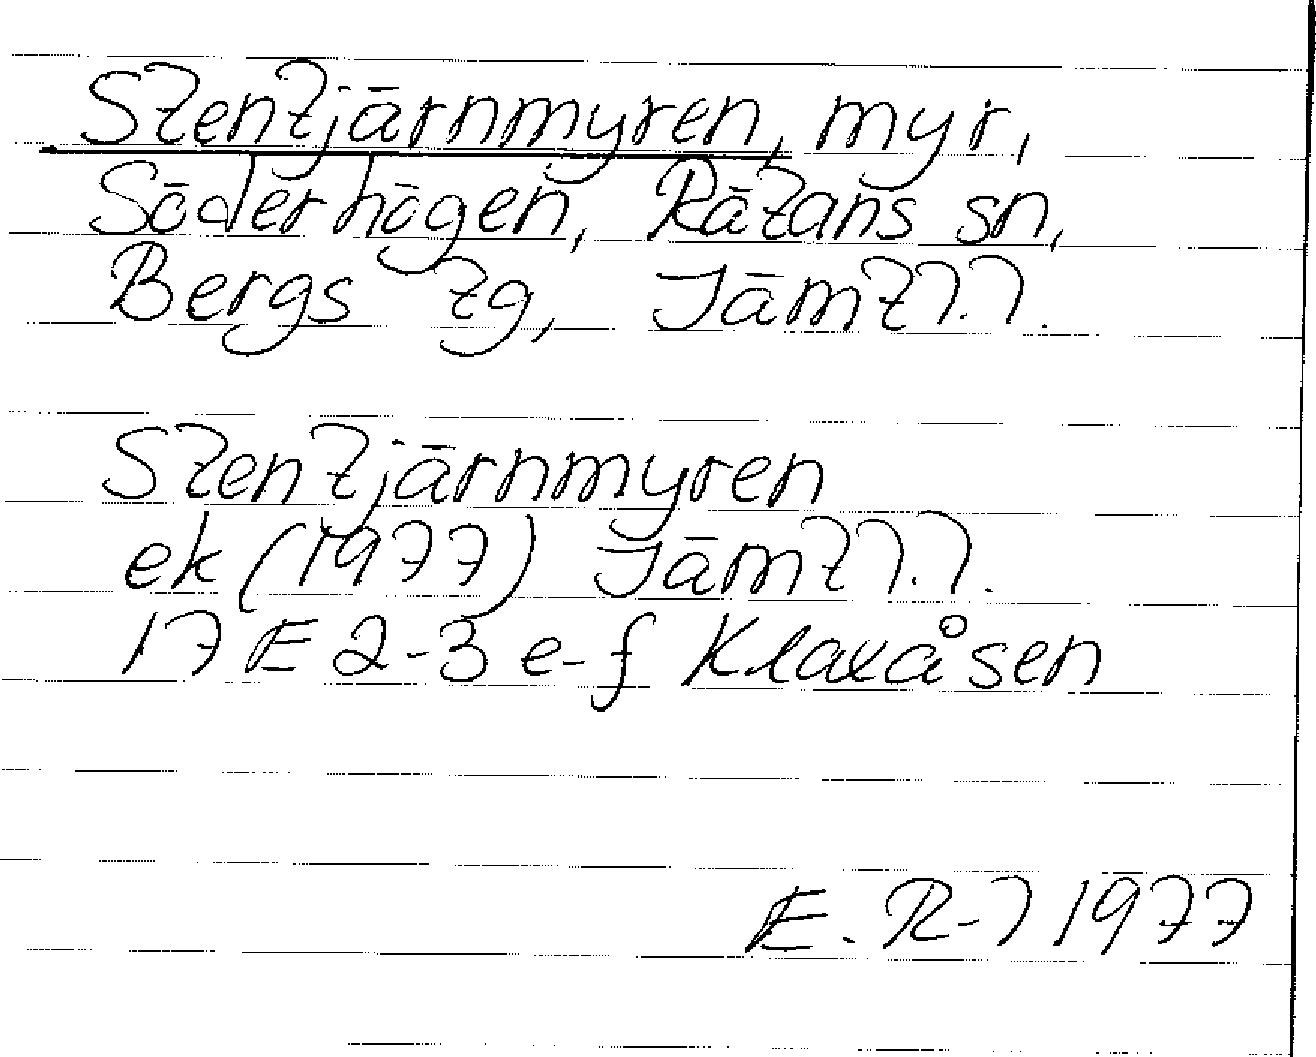 Stentjärnmyren, myr,
Söderhögen, Rätans sn,
Bergs tg, Jämtl.l.
Stentjärnmyren
ek (1977) Jämtl.l.
17 E 2-3 e-f Klaxåsen
E. R-l 1977